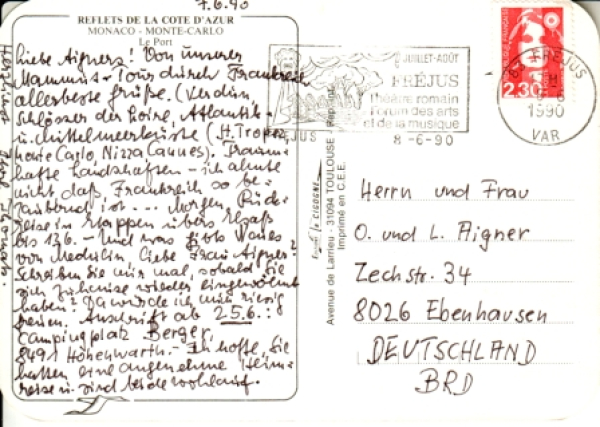 7.6.90
REFLETS DE LA COTE D'AZUR
MONACO - MONTE-CARLO
Le Port
Liebe Aigners! Von unserer
Mammut-Tour durch Frankreich
allerbeste Grüße. (Verdun,
Schlösser der Loire, Atlantik-
u. Mittelmeerküste (St. Tropez,
Monte Carlo, Nizza, Cannes). Traum-
hafte Landschaften - ich ahnte
nicht daß Frankreich so be-
zaubernd ist ... Morgen Rück-
reise in Etappen übers Elsaß
bis 13.6. - Und was gibts Neues
von Medulin, liebe Frau Aigner?
Schreiben Sie mir mal, sobald Sie
sich zuhause wieder eingewöhnt
haben? Da würde ich mich riesig
freuen. Anschrift ab 25.6.:
Campingplatz Berger,
8491 Höhenwarth. - Ich hoffe, Sie
hatten eine angenehme Heim-
reise u. sind beide wohlauf.
Herzlichst
JUILLET-AOÛT
FRÉJUS
théâtre romain
Forum des arts
et de la musique
8-6-90
83 FRÉJUS
1990
VAR
2,30
Avenue de Larrieu - 31094 TOULOUSE
Imprimé en C.E.E.
Herrn und Frau
O. und L. Aigner
Zechstr. 34
8026 Ebenhausen
DEUTSCHLAND
BRD